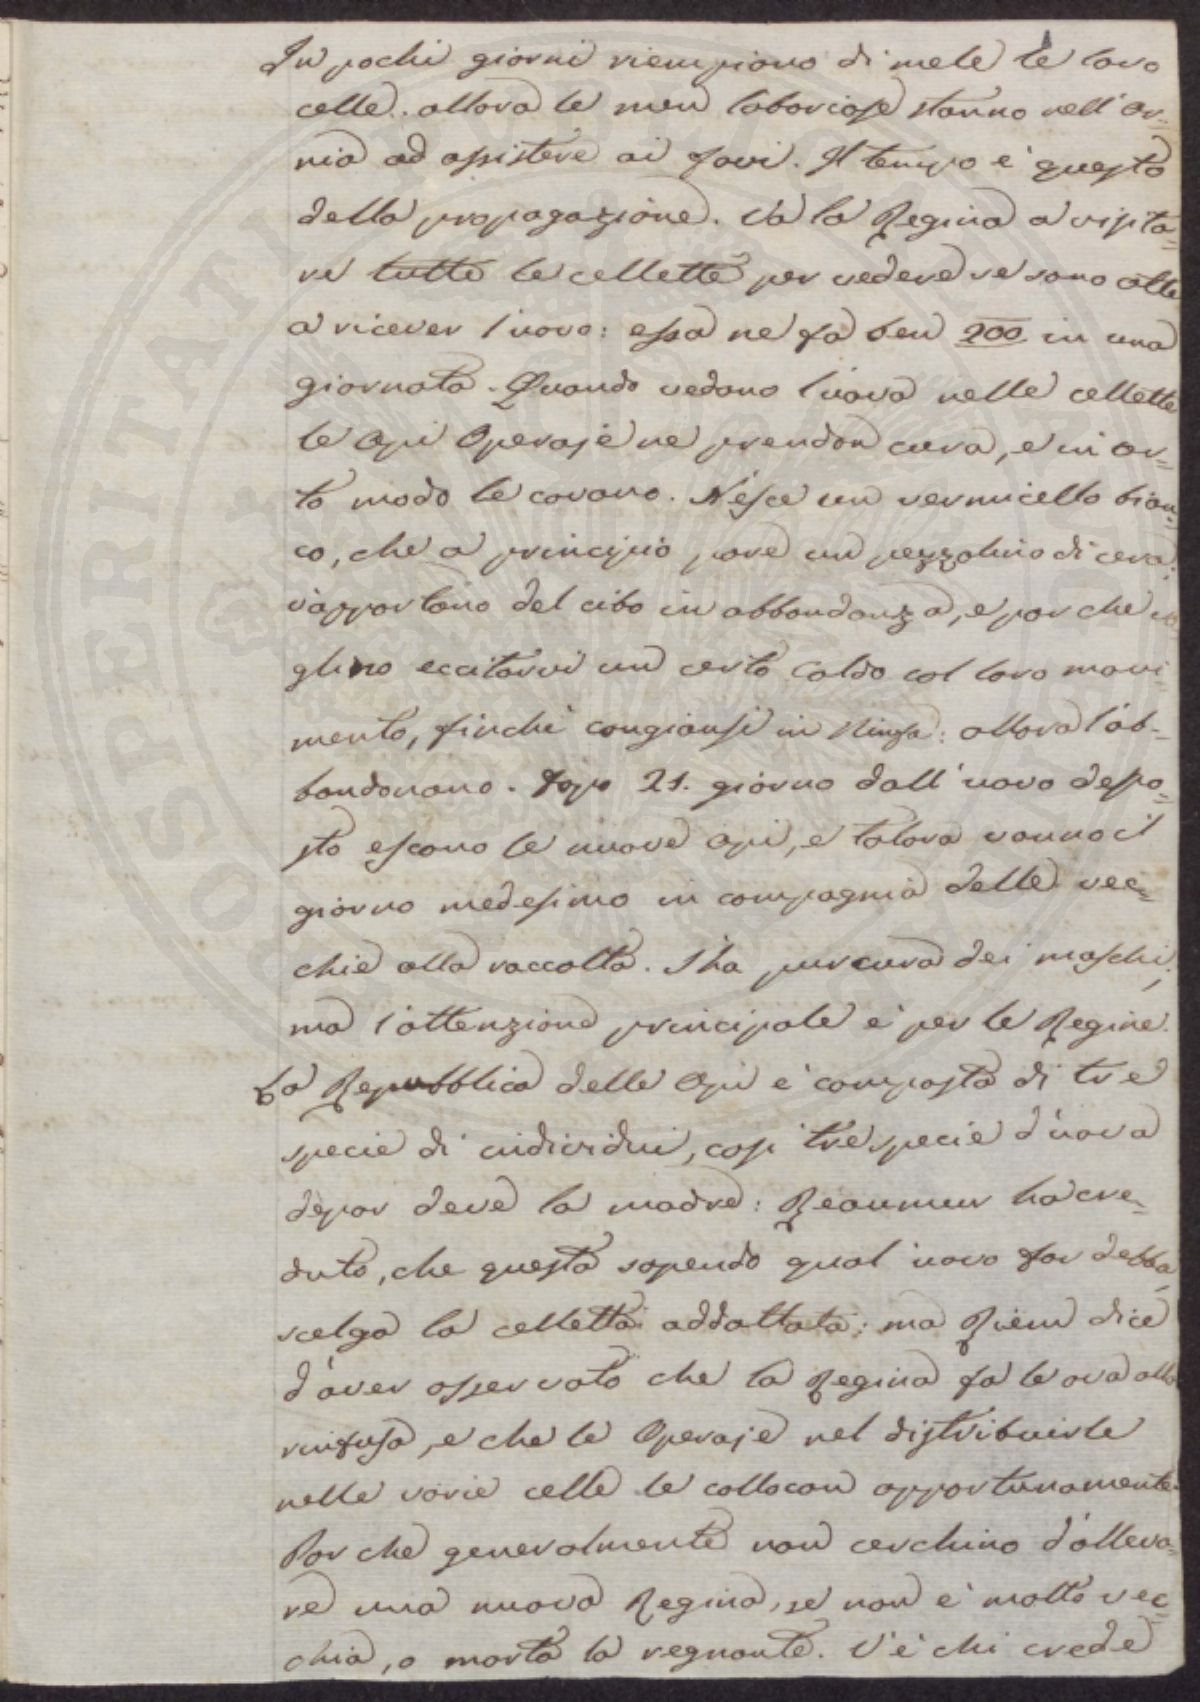 In pochi giorni riempiono di mele le loro
celle. allora le men laboriose stanno nell'Ar-
nia ad assistere ai favi. Il tempo è questo
della propagazione. Va la Regina a visita-
re tutte le cellette per vedere se sono atte
a ricever l'uovo: essa ne fa ben 200 in una
giornata. Quando vedono l'uova nelle cellette
le Api Operaje ne prendon cura, e in cer-
to modo le covano. N'esce un vermicello bian-
co, che a principio pare un pezzolino di cera:
v'apportano del cibo in abbondanza, e par che vo
glino eccitarvi un certo caldo col loro movi-
mento, finchè cangiansi in Ninfa: allora l'ab-
bandonano. Dopo 21. giorno dall'uovo depo-
sto escono le nuove Api, e talora vanno il
giorno medesimo in compagnia delle vec-
chie alla raccolta. S'ha pur cura dei maschi,
ma l'attenzione principale è per le Regine.
La Repubblica delle Api è composta di tre
specie di individui, così tre specie d'uova
depor deve la madre: Reaumur ha cre-
duto, che questa sapendo qual uovo far debba,
scelga la celletta addattata: ma Riem dice
d'aver osservato che la Regina fa le ova alla
rinfusa, e che le Operaje nel distribuirle
nelle varie celle le collocan opportunamente.
Par che generalmente non cerchino d'alleva-
re una nuova Regina, se non è molto vec-
chia, o morta la regnante. V'è chi crede